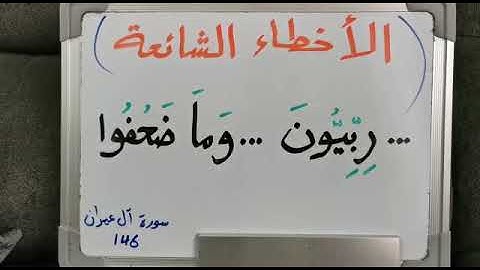 ( الأخطاء الشائعة )
... رِبِّيُّونَ ... وَمَا ضَعُفُوا
سورة آل عمران
146